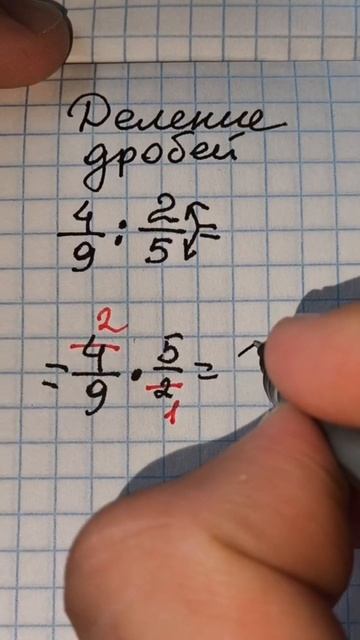 Деление
дробей
4/9 : 2/5 =
2
= 4/9 · 5/2 =
1